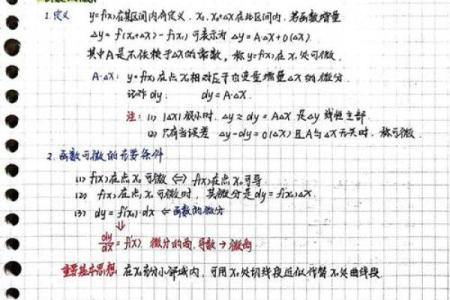 1. 定义 y=f(x)在某区间内有定义. x₀, x₀+Δx在此区间内. 若函数增量
Δy = f(x₀+Δx) - f(x₀) 可表示为 Δy=A·Δx+o(Δx).
其中A是不依赖于Δx的常数, 称y=f(x)在x₀处可微.
A·Δx: y=f(x)在点x₀相对于自变量增量Δx的微分.
记作 dy. dy=A·Δx.
注: (1) |Δx|很小时. Δy≈dy=AΔx 是Δy线性主部.
(2) 只有当误差 Δy-dy=o(Δx)且A与Δx无关时. 称可微.
2. 函数可微的充要条件
(1) f(x)在点x₀可微 ⇔ f(x)在点x₀可导
(2) f(x)在点x₀可微时, 其微分是dy=f'(x₀)Δx.
(3) dy=f'(x₀)·dx ⇐函数的微分
⇓
dy/dx = f'(x) 微分的商. 导数→微商
重要基本思想: 在x₀的小邻域内, 可用x₀处切线段近似代替x₀处曲线段.